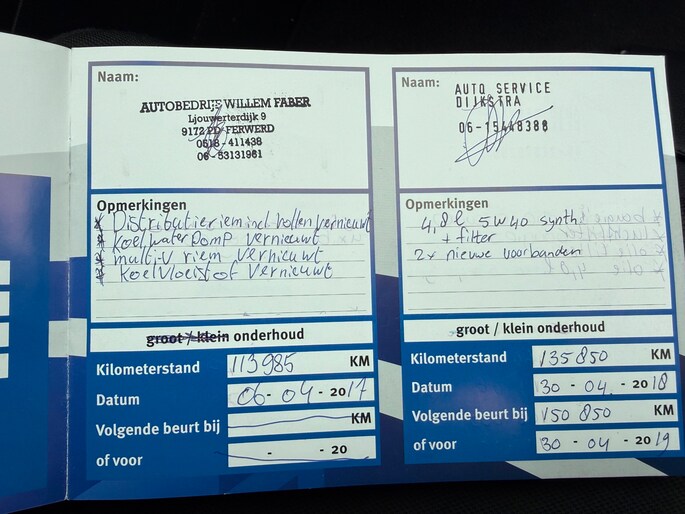 Naam:
AUTOBEDRIJF WILLEM FABER
Ljouwerterdijk 9
9172 PD FERWERD
0518 - 411438
06 - 53131981
Opmerkingen
* Distributieriem incl rollen vernieuwt
* koelwaterpomp vernieuwt
* multi-V riem vernieuwt
* koelvloeistof vernieuwt
groot / klein onderhoud
Kilometerstand 113985 KM
Datum 06 - 04 - 2017
Volgende beurt bij KM
of voor - - 20
Naam:
AUTO SERVICE
DIJKSTRA
06-15448388
Opmerkingen
4,8l 5W40 synth
+ filter
2x nieuwe voorbanden
groot / klein onderhoud
Kilometerstand 135850 KM
Datum 30 - 04 - 2018
Volgende beurt bij 150850 KM
of voor 30 - 04 - 2019